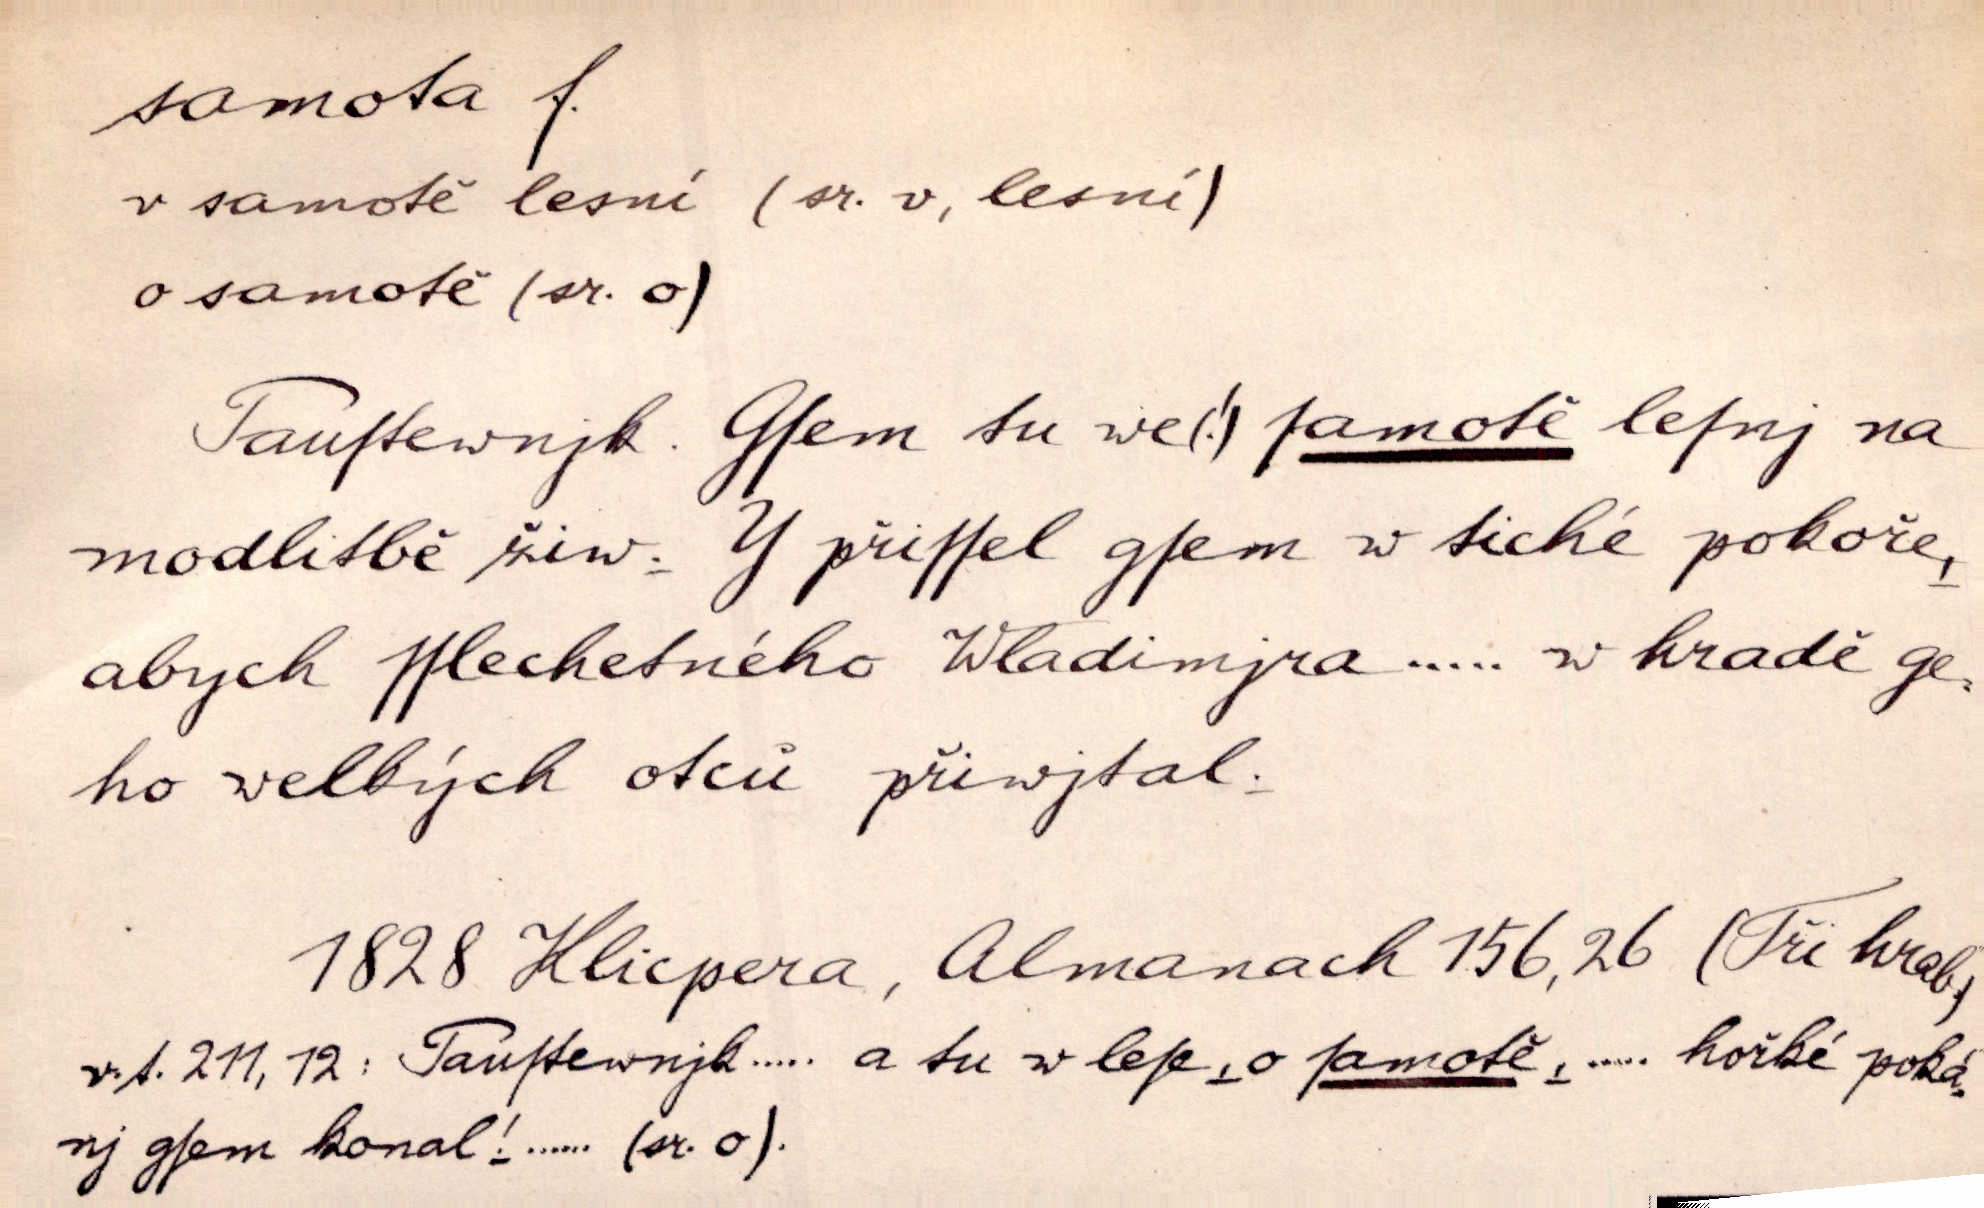 samota f.
v samotě lesní (sr. v, lesní)
o samotě (sr. o)
Pauſtewnjk. Gſem tu we(!) ſamotě leſnj na
modlitbě žiw. Y přiſſel gſem w tiché pokoře,
abych ſſlechetného Wladimjra ..... w hradě ge-
ho welkých otců přiwjtal.
1828 Klicpera, Almanach 156,26 (Tři hrab.)
v. t. 211, 12: Pauſtewnjk ..... a tu w leſe, o ſamotě, ..... hořké poká-
nj gſem konal! ...... (sr. o).